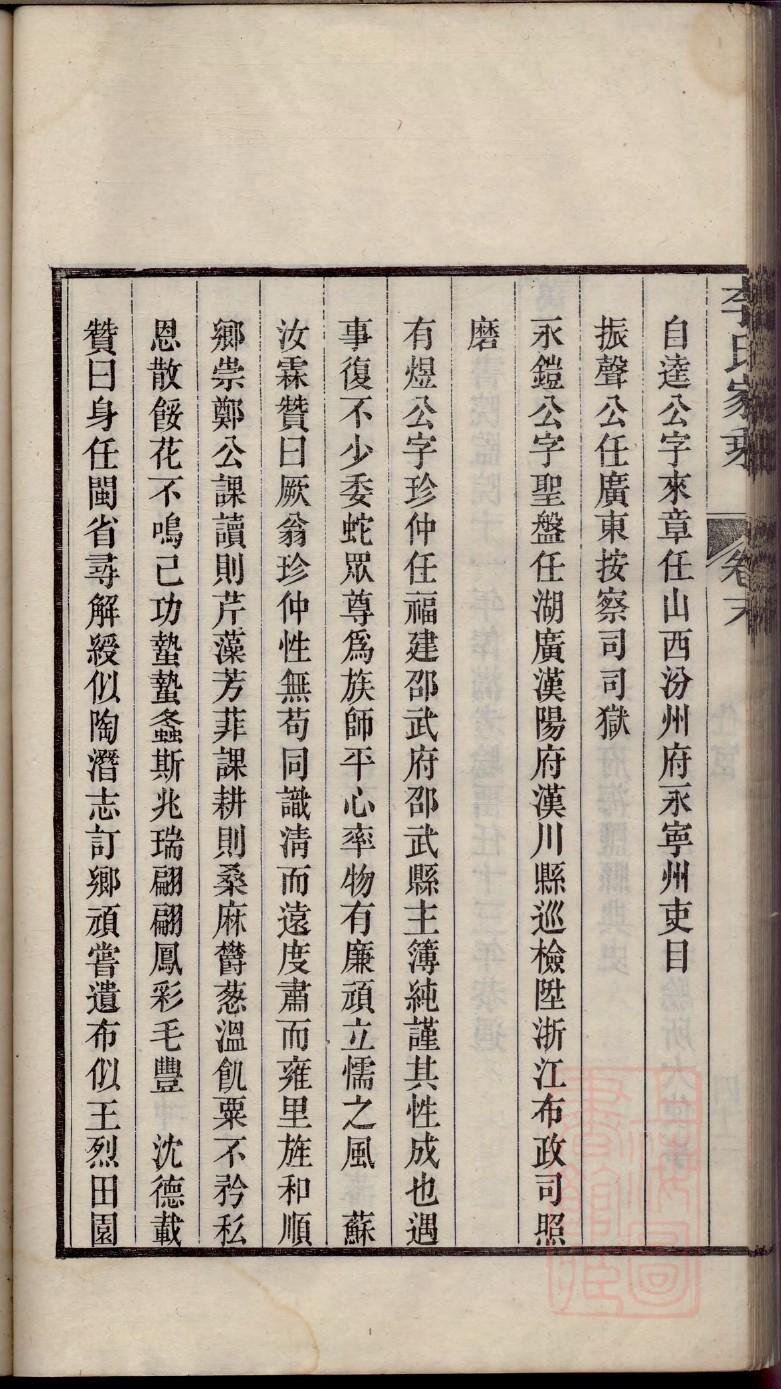 李氏家乘 卷末
自達公字來章任山西汾州府永寧州吏目
振聲公任廣東按察司司獄
永鎧公字聖盤任湖廣漢陽府漢川縣巡檢陞浙江布政司照
磨
有煜公字珍仲任福建邵武府邵武縣主簿純謹其性成也遇
事復不少委蛇眾尊爲族師平心率物有廉頑立懦之風 蘇
汝霖贊曰厥翁珍仲性無苟同識淸而遠度肅而雍里旌和順
鄉崇鄭公課讀則芹藻芳菲課耕則桑麻欝葱溫飢粟不矜私
恩散餒花不鳴己功蟄蟄螽斯兆瑞翩翩鳳彩毛豐 沈德載
贊曰身任閩省尋解綬似陶潛志訂鄉頑嘗遺布似王烈田園